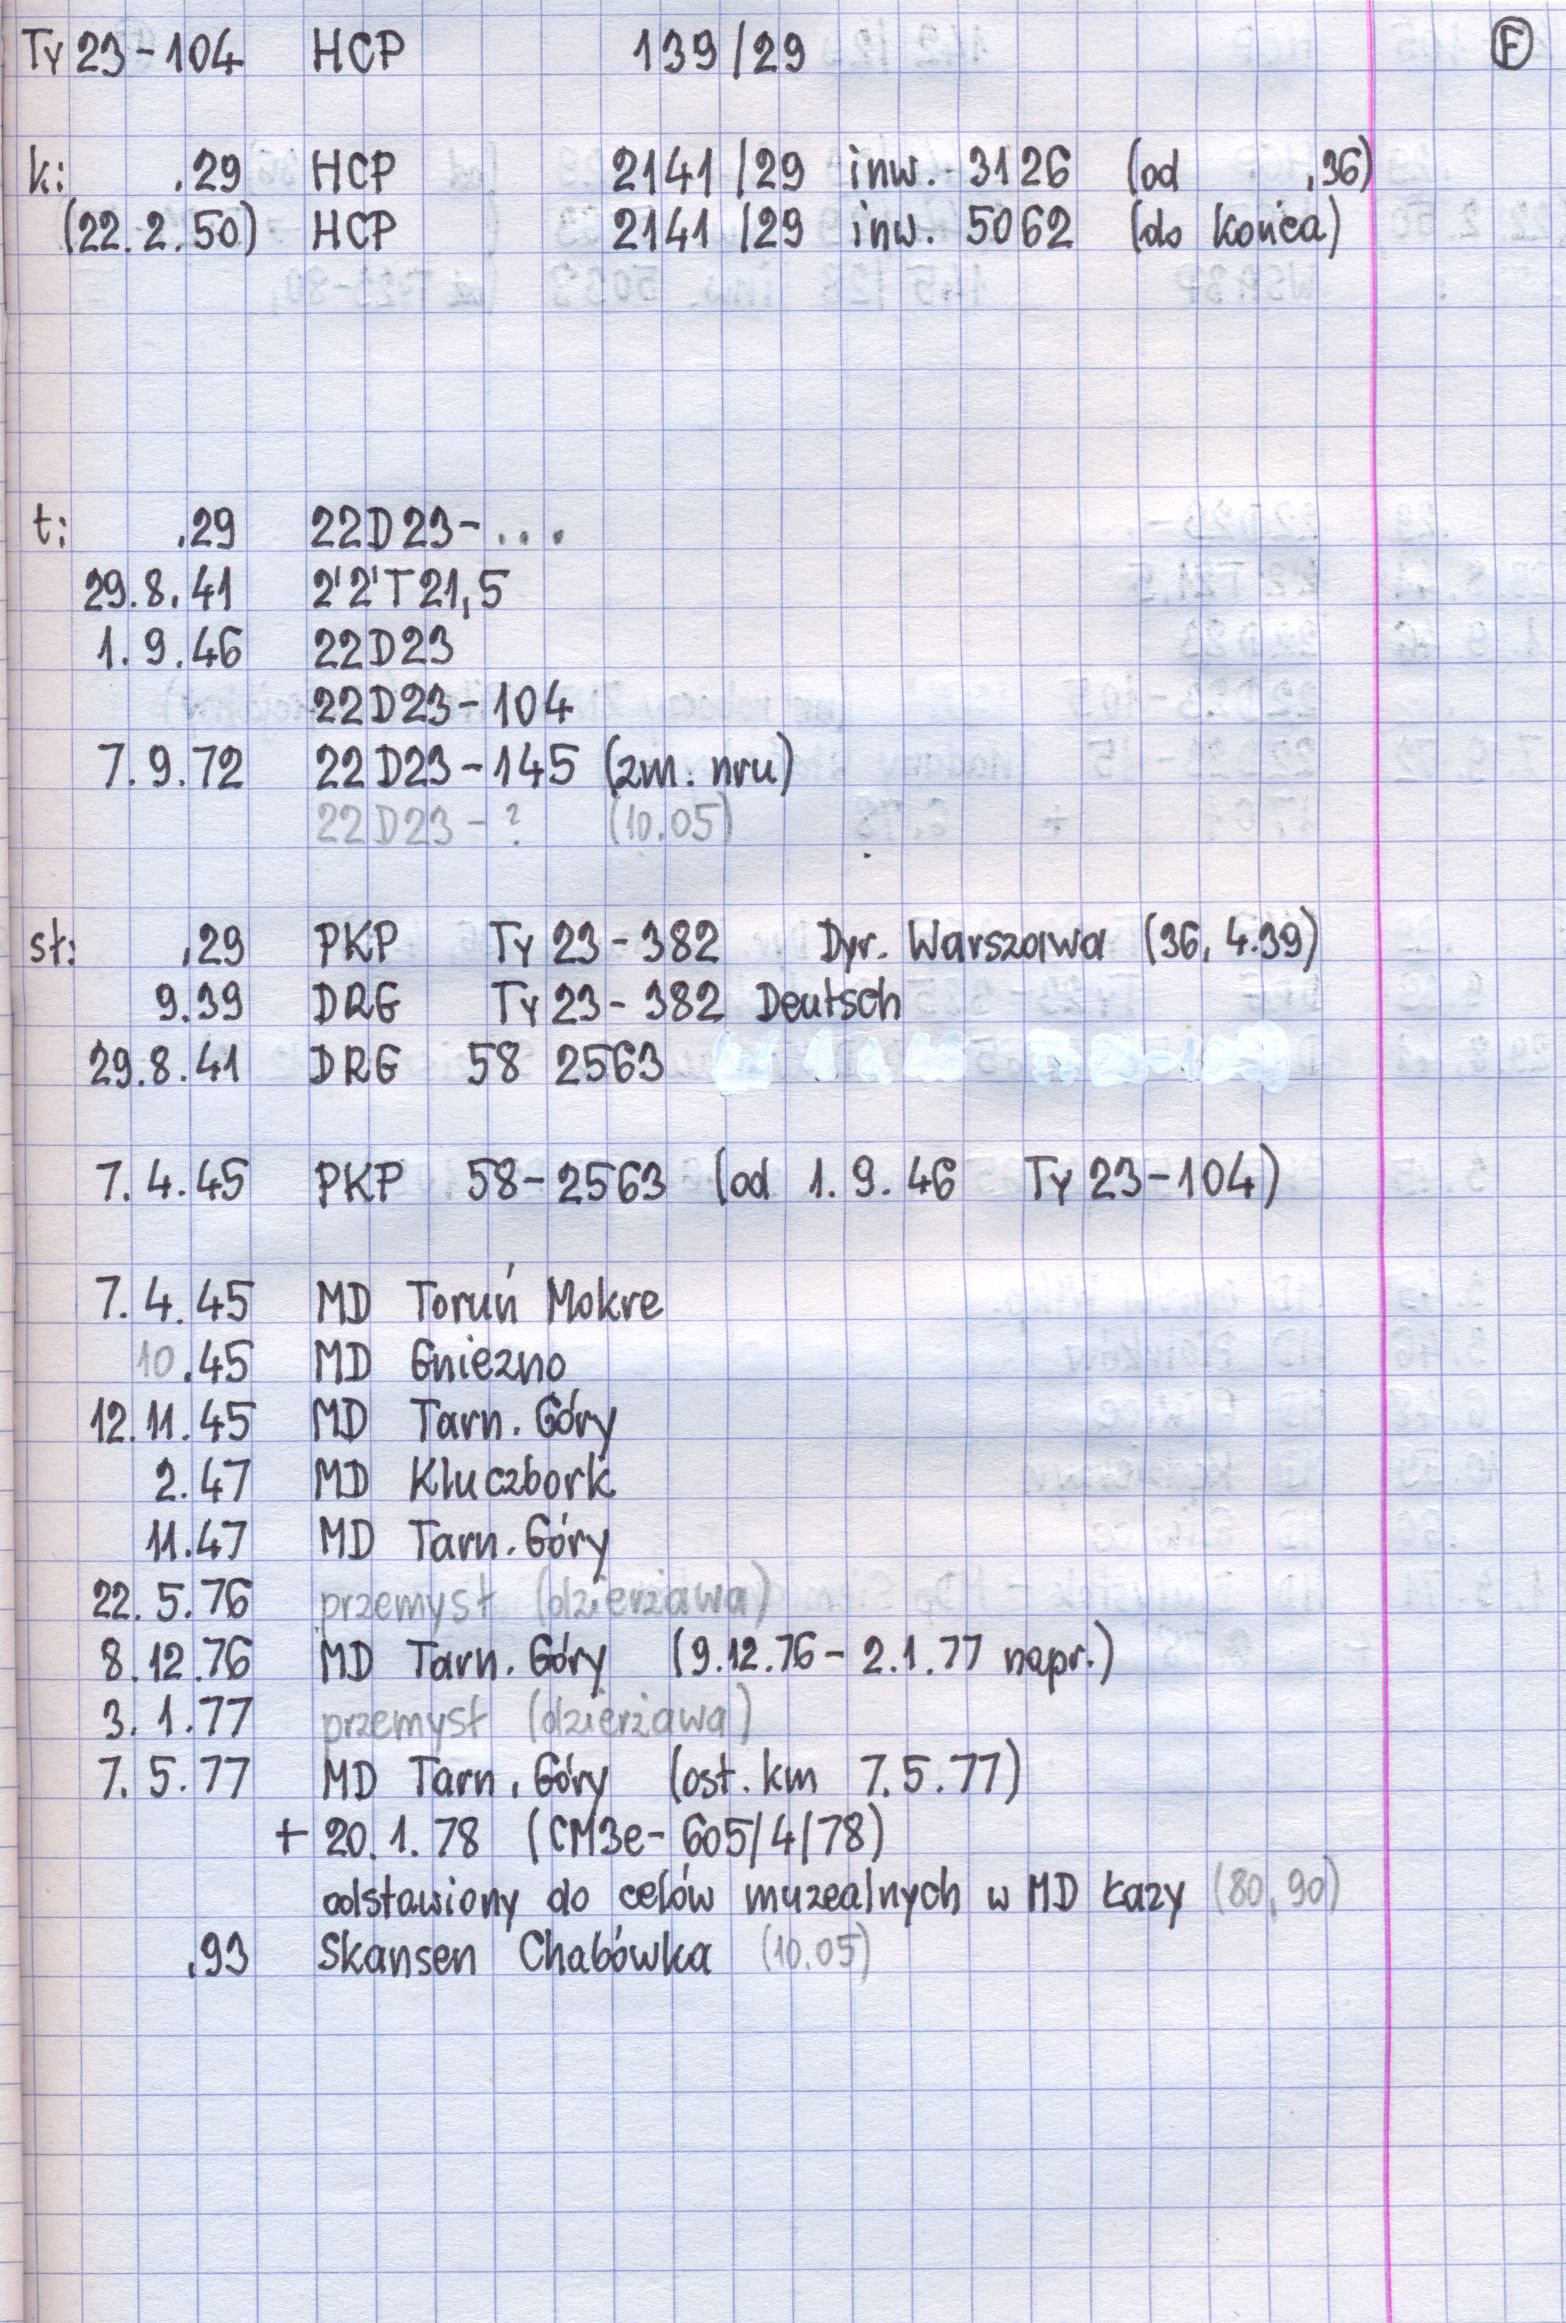 Ty 23-104 HCP 139/29 F
k: .29 HCP 2141/29 inw. 3126 (od .36)
(22.2.50) HCP 2141/29 inw. 5062 (do końca)
t: .29 22D23-...
29.8.41 2'2'T21,5
1.9.46 22D23
22D23-104
7.9.72 22D23-145 (zm. nru)
22D23-? (10.05)
sł: .29 PKP Ty 23-382 Dyr. Warszawa (36, 4.39)
9.39 DRG Ty 23-382 Deutsch
29.8.41 DRG 58 2563
7.4.45 PKP 58-2563 (od 1.9.46 Ty 23-104)
7.4.45 MD Toruń Mokre
10.45 MD Gniezno
12.11.45 MD Tarn. Góry
2.47 MD Kluczbork
11.47 MD Tarn. Góry
22.5.76 przemysł (dzierżawa)
8.12.76 MD Tarn. Góry (9.12.76 - 2.1.77 napr.)
3.1.77 przemysł (dzierżawa)
7.5.77 MD Tarn. Góry (ost. km 7.5.77)
+ 20.1.78 (CM3e-605/4/78)
odstawiony do celów muzealnych w MD Łazy (80, 90)
.93 Skansen Chabówka (10.05)